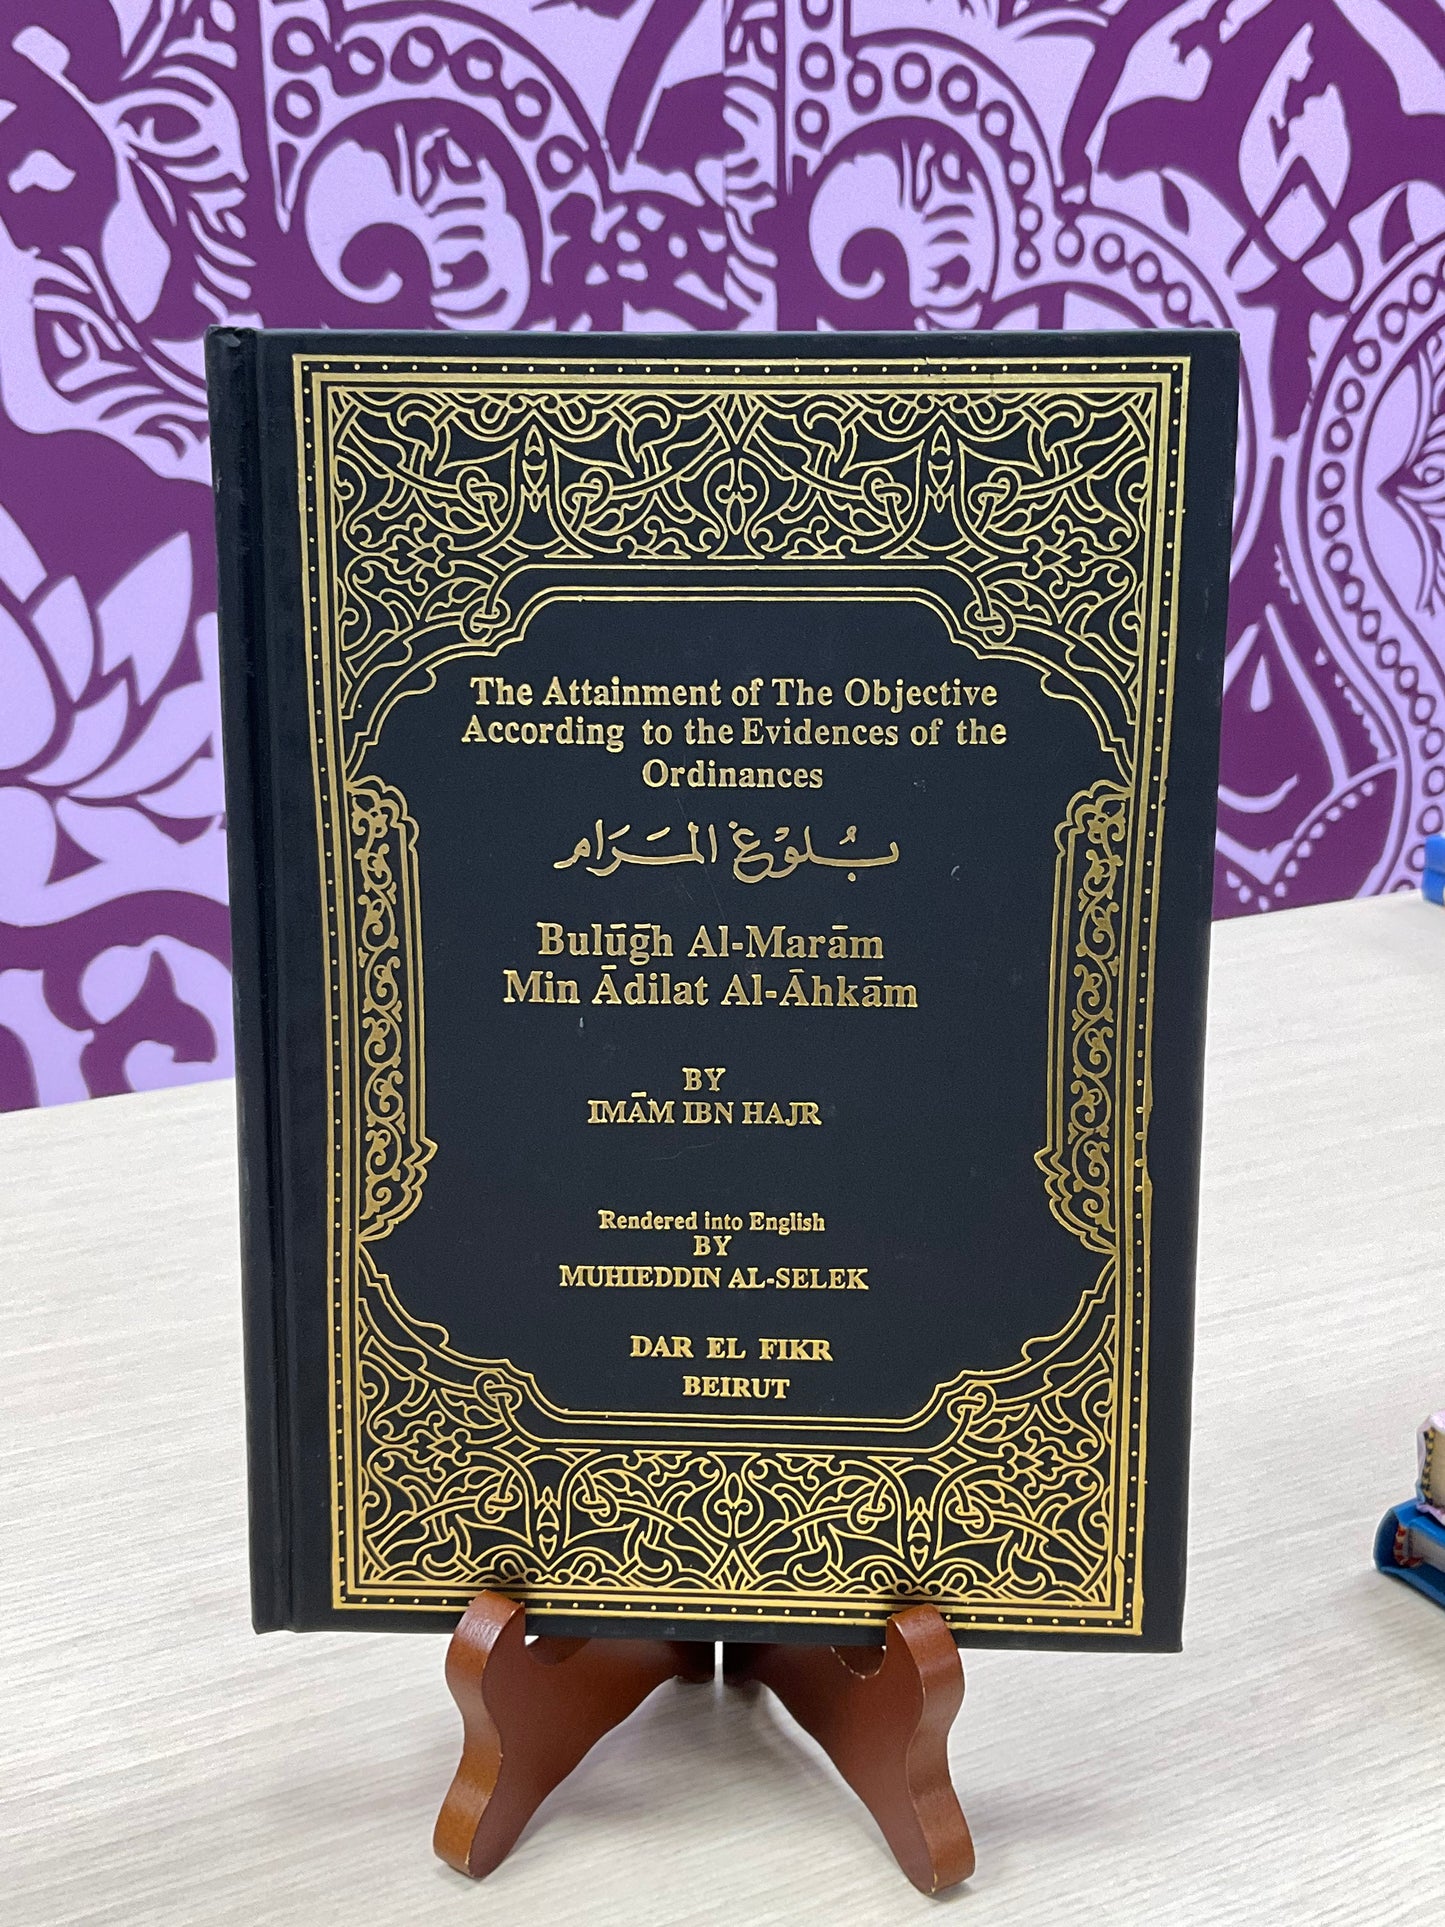 The Attainment of The Objective
According to the Evidences of the
Ordinances
بُلُوْغ المَرَام
Bulūḡh Al-Marām
Min Ādilat Al-Āhkām
BY
IMĀM IBN HAJR
Rendered into English
BY
MUHIEDDIN AL-SELEK
DAR EL FIKR
BEIRUT